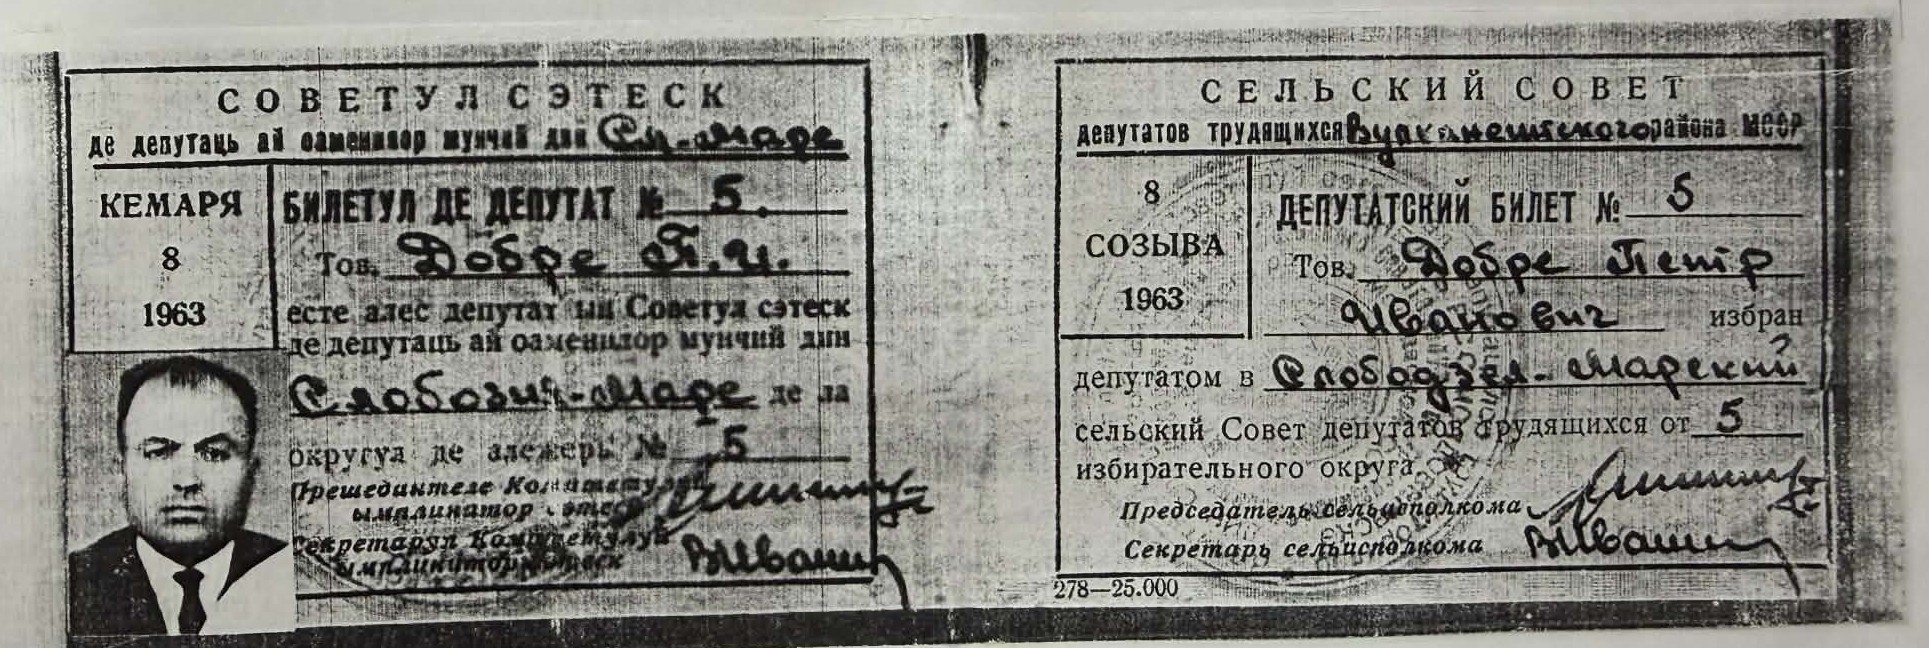 СОВЕТУЛ СЭТЕСК
де депутаць ай оаменилор мунчий дин Сл-Маре
КЕМАРЯ
8
1963
БИЛЕТУЛ ДЕ ДЕПУТАТ № 5.
Тов. Добре П.И.
есте алес депутат ын Советул сэтеск
де депутаць ай оаменилор мунчий дин
Слобозия-Маре де ла
округул де алежерь № 5
Прешединтеле Комитетулуй
ымплинитор сэтеск
Секретарул Комитетулуй
ымплинитор сэтеск
СЕЛЬСКИЙ СОВЕТ
депутатов трудящихся Вулканештского района МССР
8
СОЗЫВА
1963
ДЕПУТАТСКИЙ БИЛЕТ № 5
Тов. Добре Петр
Иванович избран
депутатом в Слободзея-Марский
сельский Совет депутатов трудящихся от 5
избирательного округа
Председатель сельисполкома
Секретарь сельисполкома
278—25.000